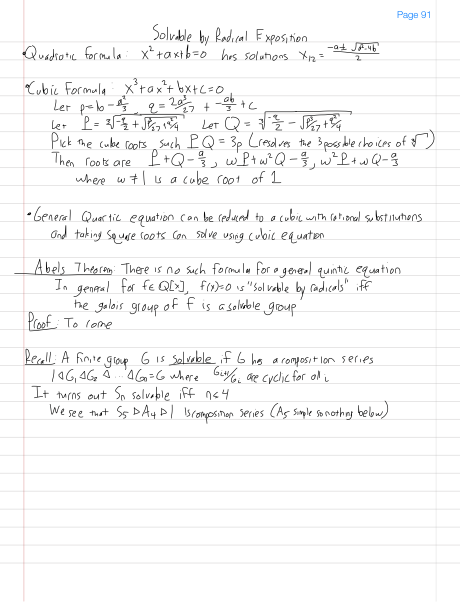 Page 91
Solvable by Radical Exposition
• Quadratic formula: x² + ax + b = 0 has solutions x₁₂ = (-a ± √(a²-4b))/2
• Cubic Formula: x³ + ax² + bx + c = 0
Let p = b - a²/3, q = 2a³/27 + -ab/3 + c
Let P = ³√(-q/2 + √(p³/27 + q²/4)) Let Q = ³√(-q/2 - √(p³/27 + q²/4))
Pick the cube roots such PQ = 3p (resolves the 3 possible choices of ³√)
Then roots are P + Q - a/3, ωP + ω²Q - a/3, ω²P + ωQ - a/3
where ω ≠ 1 is a cube root of 1
• General Quartic equation can be reduced to a cubic with rational substitutions
and taking square roots can solve using cubic equation
Abels Theorem: There is no such formula for a general quintic equation
In general for f ∈ Q[x], f(x) = 0 is "solvable by radicals" iff
the galois group of f is a solvable group
Proof: To come
Recall: A finite group G is solvable if G has a composition series
1 ◁ G₁ ◁ G₂ ◁ ... ◁ Gₙ = G where Gᵢ₊₁/Gᵢ are cyclic for all i
It turns out Sₙ solvable iff n ≤ 4
We see that S₅ ▷ A₅ ▷ 1 is composition series (A₅ simple so nothing below)